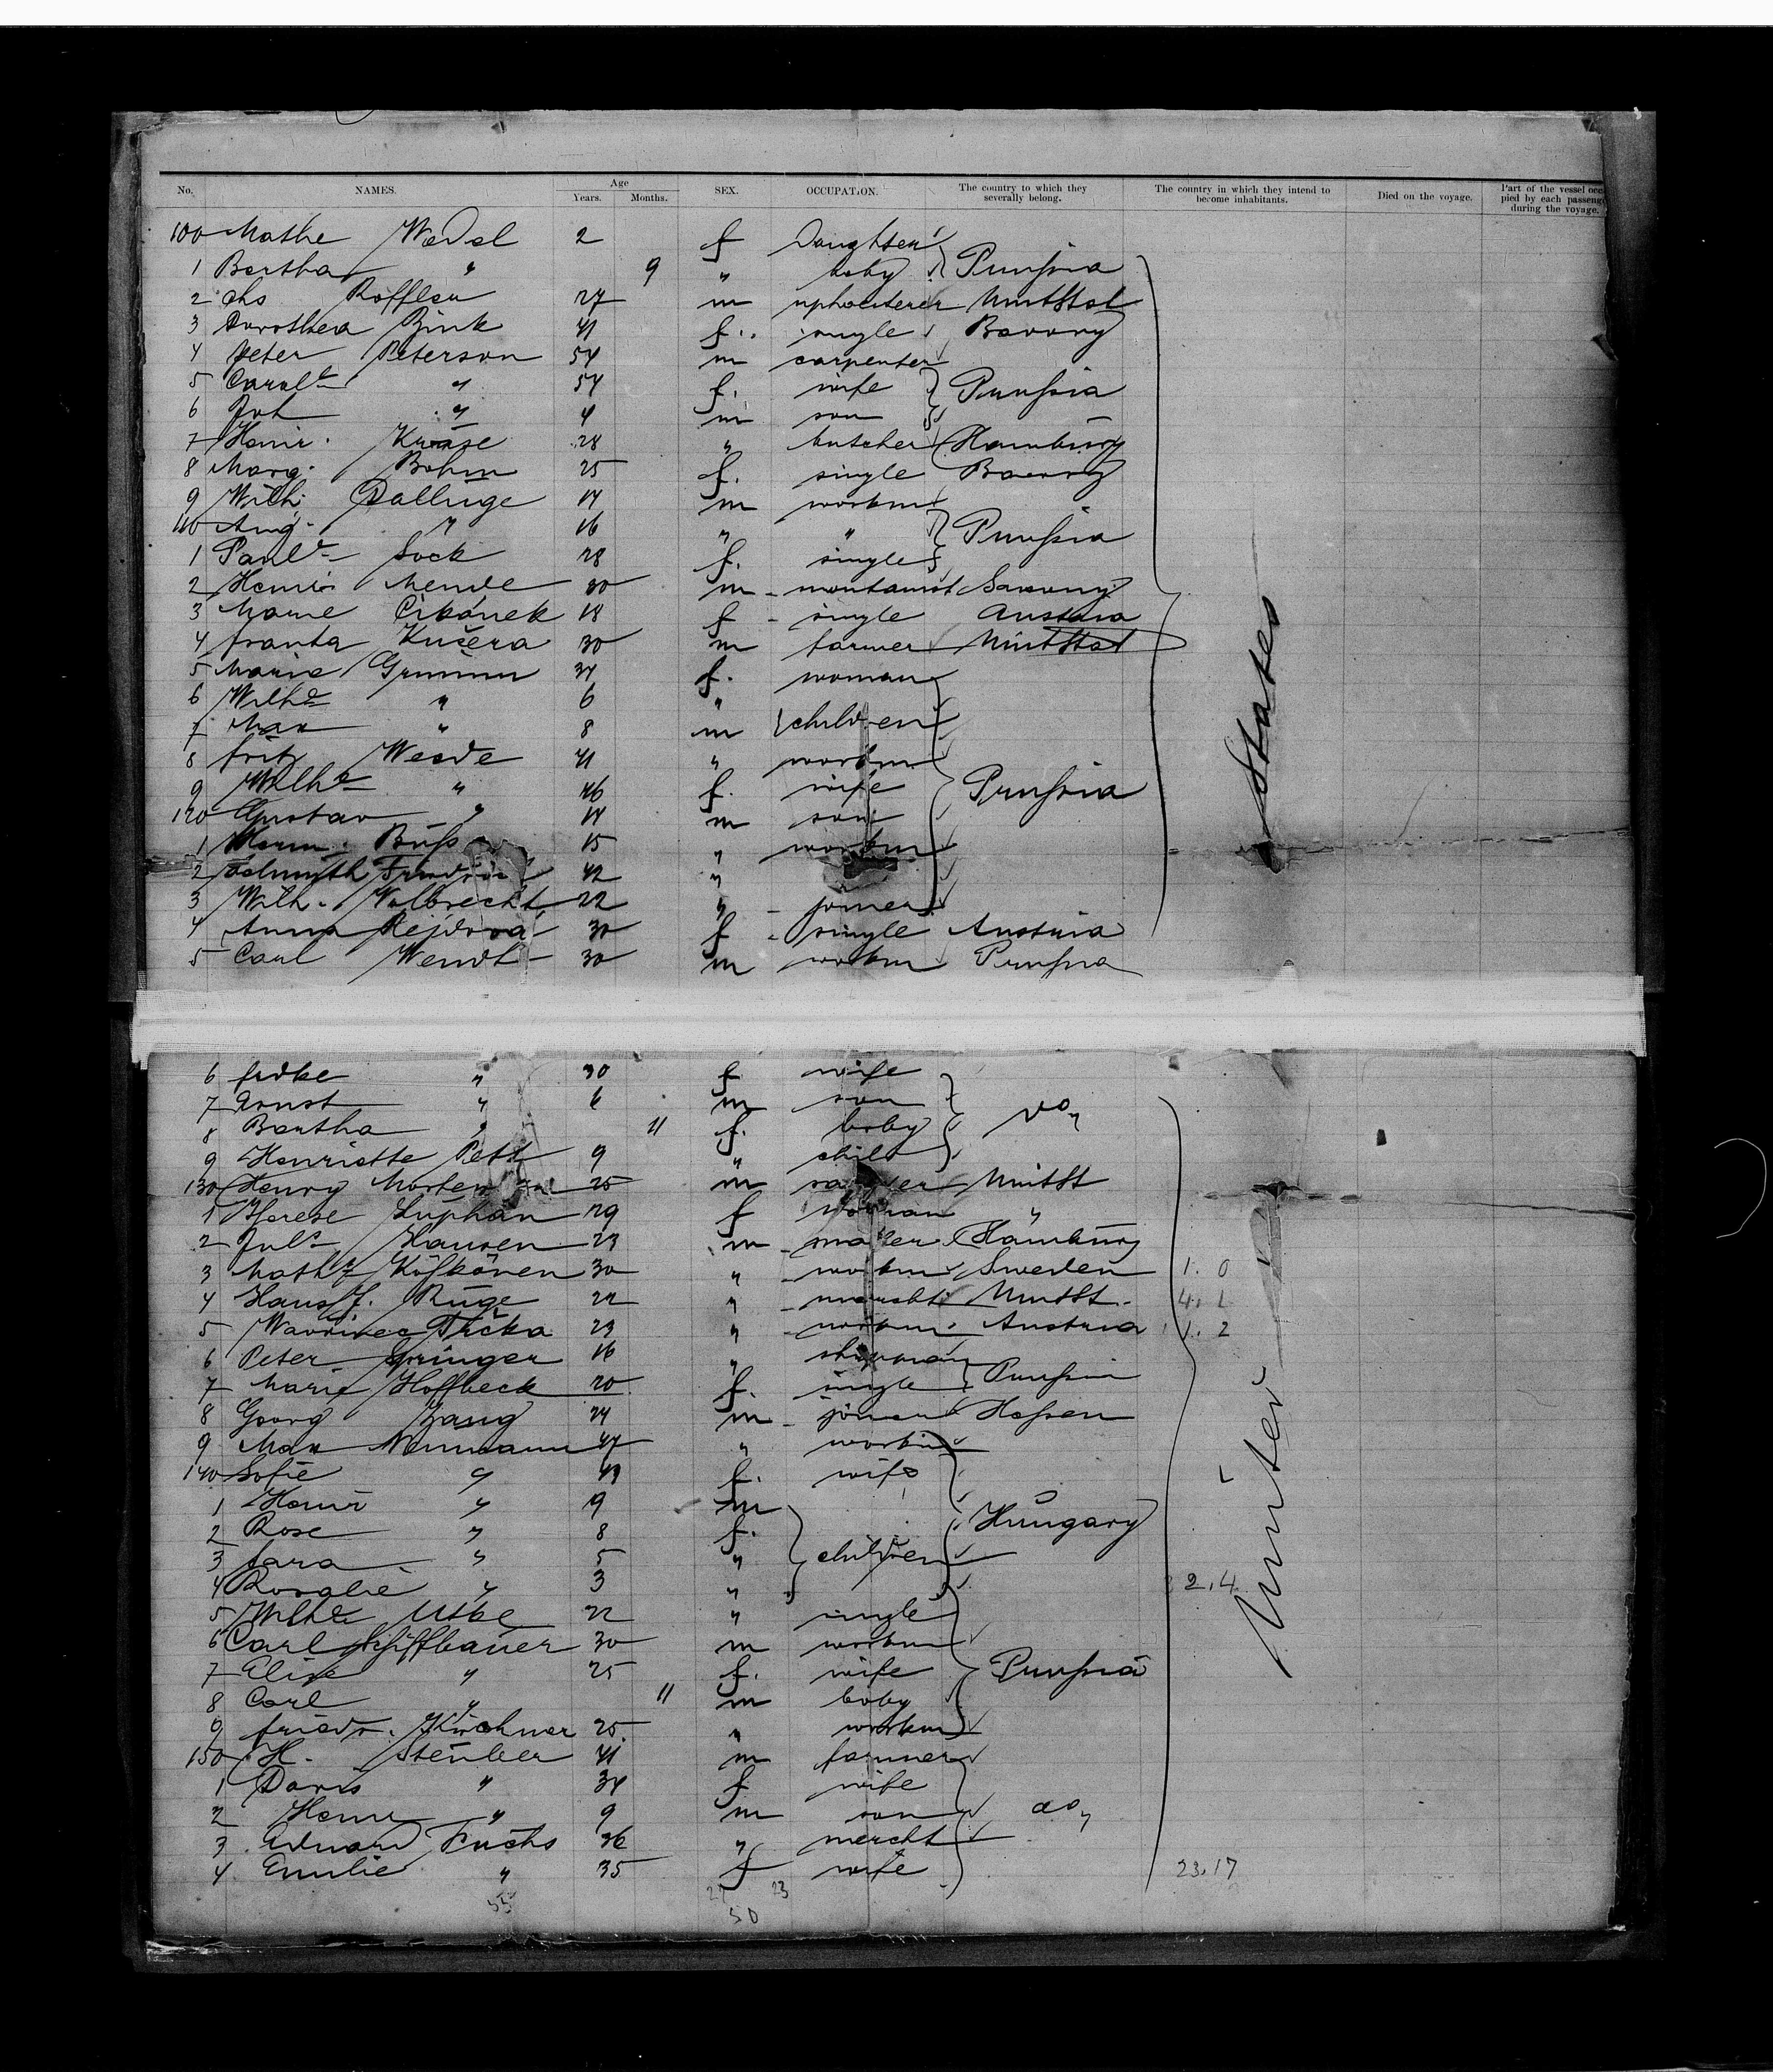 No. NAMES. Age Years. Months. SEX. OCCUPATION. The country to which they severally belong. The country in which they intend to become inhabitants. Died on the voyage. Part of the vessel occupied by each passenger during the voyage.
100 Mathe Wedel 2 f Daughter
1 Bertha " 9 " baby Prussia
2 Chs Roffler 27 m upholsterer UnitStat
3 Dorothea Zink 41 f. single Bavary
4 Peter Peterson 54 m carpenter
5 Carole " 54 f. wife Prussia
6 Joh " 4 m son
7 Heinr. Kruse 28 " butcher Hamburg
8 Marg. Böhm 25 f. single Bavary
9 Wilh. Dallüge 14 m workm
110 Aug. " 16 " " Prussia
1 Paule Sock 28 f. single
2 Heinr. Mende 30 m Saxony
3 Marie Cikánek 18 f single Austria
4 Franta Kučera 30 m farmer UnitStat
5 Marie Grimm 34 f. woman
6 Wilhe " 6 "
7 Max " 8 m children
8 Fritz Weede 41 " workm
9 Wilhe " 46 f. wife Prussia
120 Gustav " 14 m son
1 Herm. Buss 15 " workm
2 Helmuth 42 "
3 Wilh. Wolbrecht 22 " joiner
4 Anna Rejdová 30 f single Austria
5 Carl Wendt 30 m workm Prussia
6 Fridke " 30 f wife
7 Ernst " 6 m son do
8 Bertha " 11 f. baby
9 Henriette Pett 9 " child
130 Henry 25 m UnitSt
1 Therese Luphan 29 f woman "
2 Juls Hansen 23 m Hamburg
3 30 " workm Sweden 1. 0
4 Hans J. Ruge 22 " mercht UnitSt. 4. 1
5 Wavrinec Trčka 23 " workm Austria 1. 2
6 Peter Springer 16 "
7 Marie Hoffbeck 20 f. single Prussia
8 Georg Zaug 24 m joiner Hessen
9 Max Neumann 47 " workm
140 Sofie " 43 f. wife
1 Heinr " 9 m
2 Rose " 8 f. Hungary
3 " 5 " children
4 Rosalie " 3 " 2. 4
5 Wilhe Utke 22 " single
6 Carl Schiffbauer 30 m workm
7 Elise " 25 f. wife Prussia
8 Carl " 11 m baby
9 Friedr. Kirchner 25 " workm
150 H. 41 m farmer
1 Doris " 34 f wife
2 Heinr " 9 m son do
3 Eduard Fuchs 36 " mercht
4 Emilie " 35 f wife 23.17
55 27 23
50
United States